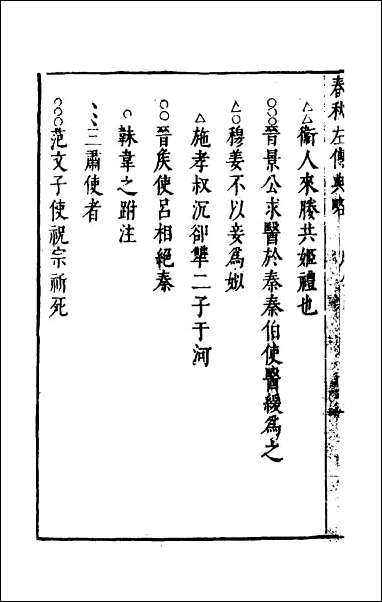 春秋左傳典略
△△衛人來媵共姬禮也
○○○晉景公求醫於秦秦伯使醫緩爲之
△○穆姜不以妾爲姒
△施孝叔沉卻犨二子于河
○○晉矦使呂相絕秦
○韎韋之跗注
、、三肅使者
○○○范文子使祝宗祈死